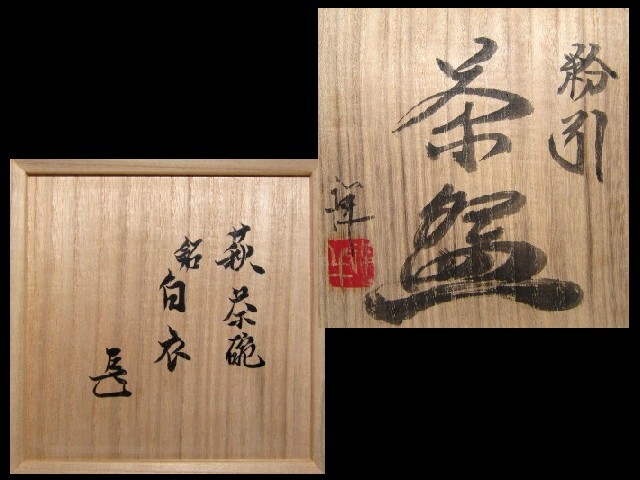 粉引
茶盌
萩茶碗
銘白衣